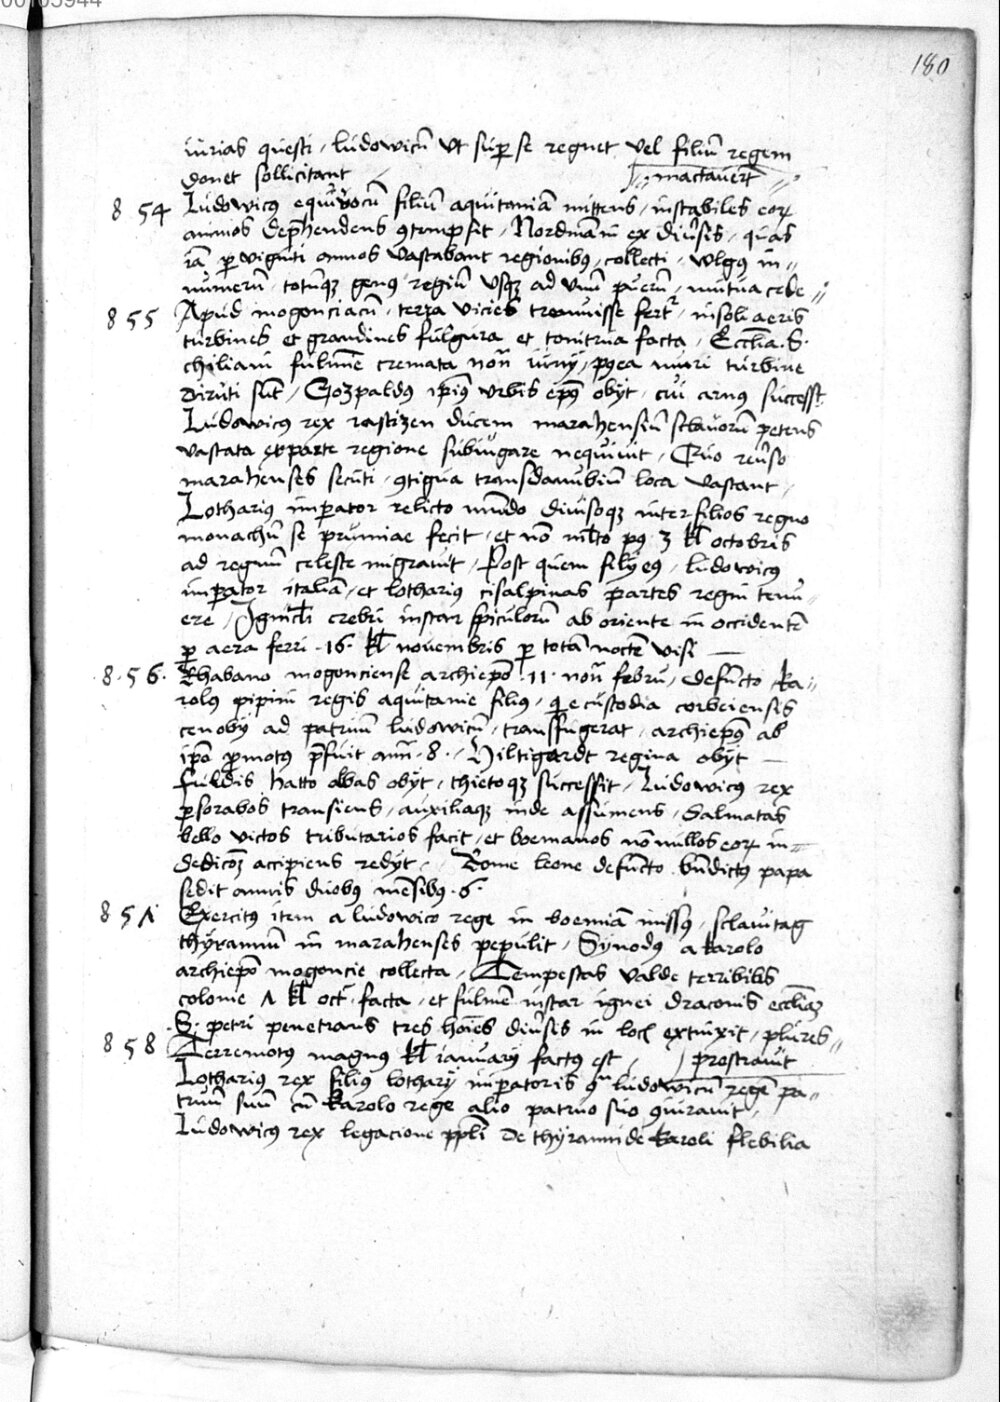 00103944
180
iurias questi, ludowicū ut sup se regnet vel filiū regem
donet sollicitant
8 54 Ludowicꝯ equiuocū filiū aquitaniā mittens, instabiles eoꝝ
animos dep̄hendens ꝯtrāpsit, Nordmāni ex diūsis, quas
iā ꝑ viginti annos vastabant regionibꝯ, collecti, vulgꝯ in⸗
numerū, totūqꝫ genꝯ regiū usqꝫ ad unū puerū, mutua cede
mactauert̄
8 55 Apud mogonciacū, terra vicies tremuisse fert᷑, insoli aeris
turbines et grandines fulgura et tonitrua facta, Eccl̄ia. S.
chiliani fulmīe cremata nōn̄ iunij, pꝯea muri turbine
diruti sūt, Gozpaldꝯ ipsiꝯ urbis ep̄ꝯ obijt, cui arnꝯ success̄t
Ludowicꝯ rex rastizen ducem marahensiū sclauorū petens
vastata ex parte regione subiugare nequiuit, Quo reūso
marahenses secuti, ꝯtigua transdanubiū loca vastant,
Lothariꝯ imꝑator relicto mūdo diuisoqꝫ inter filios regno
monachū se prumiae fecit, et nō ml̄to pꝯ 3 kl̄ octobris
ad regnū celeste migrauit, Post quem filij eꝯ, ludowicꝯ
imꝑator italiā, et lothariꝯ cisalpinas partes regni tenu⸗
ere, Ignicl̄i crebri instar spiculorū ab oriente in occidentē
ꝑ aera ferri .16. kl̄ nouembris ꝑ totā noctē visi —
8.56. Rhabano mogonciense archiepō .11. nōn̄ febru, defūcto ka⸗
rolꝯ pipini regis aquitanie filiꝯ, qi e custodia corbeiensis
cenobij ad patruū ludowicū, transfugerat, archiep̄ꝯ ab
ip̄o ꝓmotꝯ p̄fuit ann̄. 8. Hiltigardt regina obijt —
fuldis hatto abbas obijt, thietoqꝫ successit, Ludowicꝯ rex
ꝑ sorabos transiens, auxiliaqꝫ inde assumens, dalmatas
bello victos tributarios facit, et boemanos nō nullos eoꝝ in⸗
dedicōꝫ accipiens redijt, Rome leone defūcto bn̄dictꝯ papa
sedit annis duobꝯ mēsibꝯ .6.
8 5Λ Exercitꝯ item a ludowico rege in boemiā missꝯ, sclauitag
thÿrannū in marahenses pepulit, Synodꝯ a karolo
archiepō mogoncie collecta, Tempestas valde terribilis
colonie Λ kl̄ oct̄. facta, et fulmē instar ignei draconis eccl̄iaꝫ
.S. petri penetrans tres hoīes diūsis in loc̄ extinxit, plures
prostrauit
8 58 Terremotꝯ magnꝯ kl̄ ianuarij factꝯ est,
Lothariꝯ rex filiꝯ lotharij imꝑatoris ꝯ̄ ludowicū regē pa⸗
truū suū cū karolo rege alio patruo suo ꝯiurauit,
Ludowicꝯ rex legacione ppl̄i de thÿrannide karoli flebilia